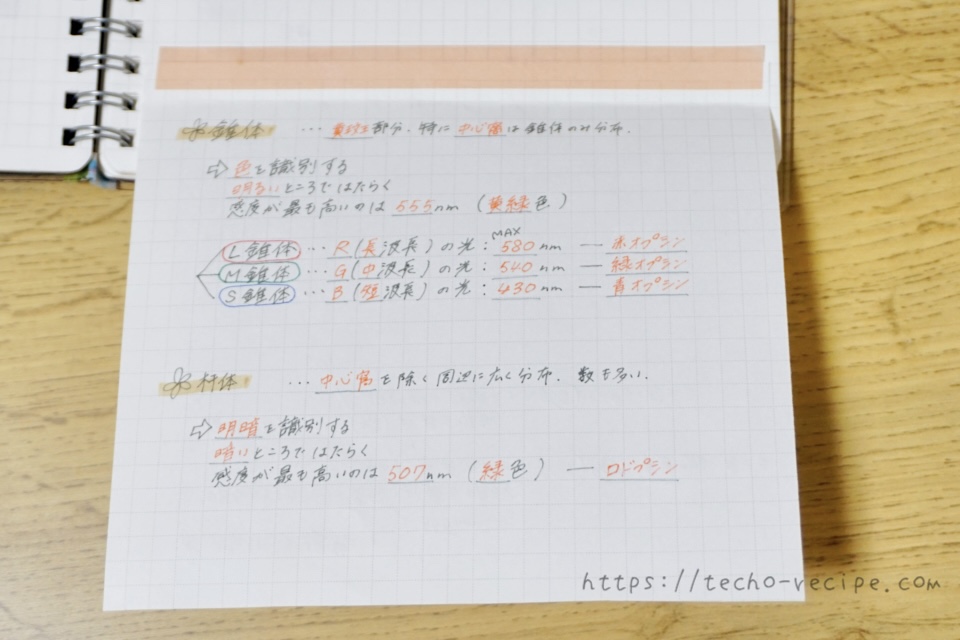 錐体 … 黄斑部分、特に中心窩は錐体のみ分布.
⇨ 色を識別する
明るいところではたらく
感度が最も高いのは 555nm (黄緑色)
L錐体 … R(長波長)の光: MAX 580nm — 赤オプシン
M錐体 … G(中波長)の光: 540nm — 緑オプシン
S錐体 … B(短波長)の光: 430nm — 青オプシン
杆体 … 中心窩を除く周辺に広く分布. 数も多い.
⇨ 明暗を識別する
暗いところではたらく
感度が最も高いのは 507nm (緑色) — ロドプシン
https://techo-recipe.com